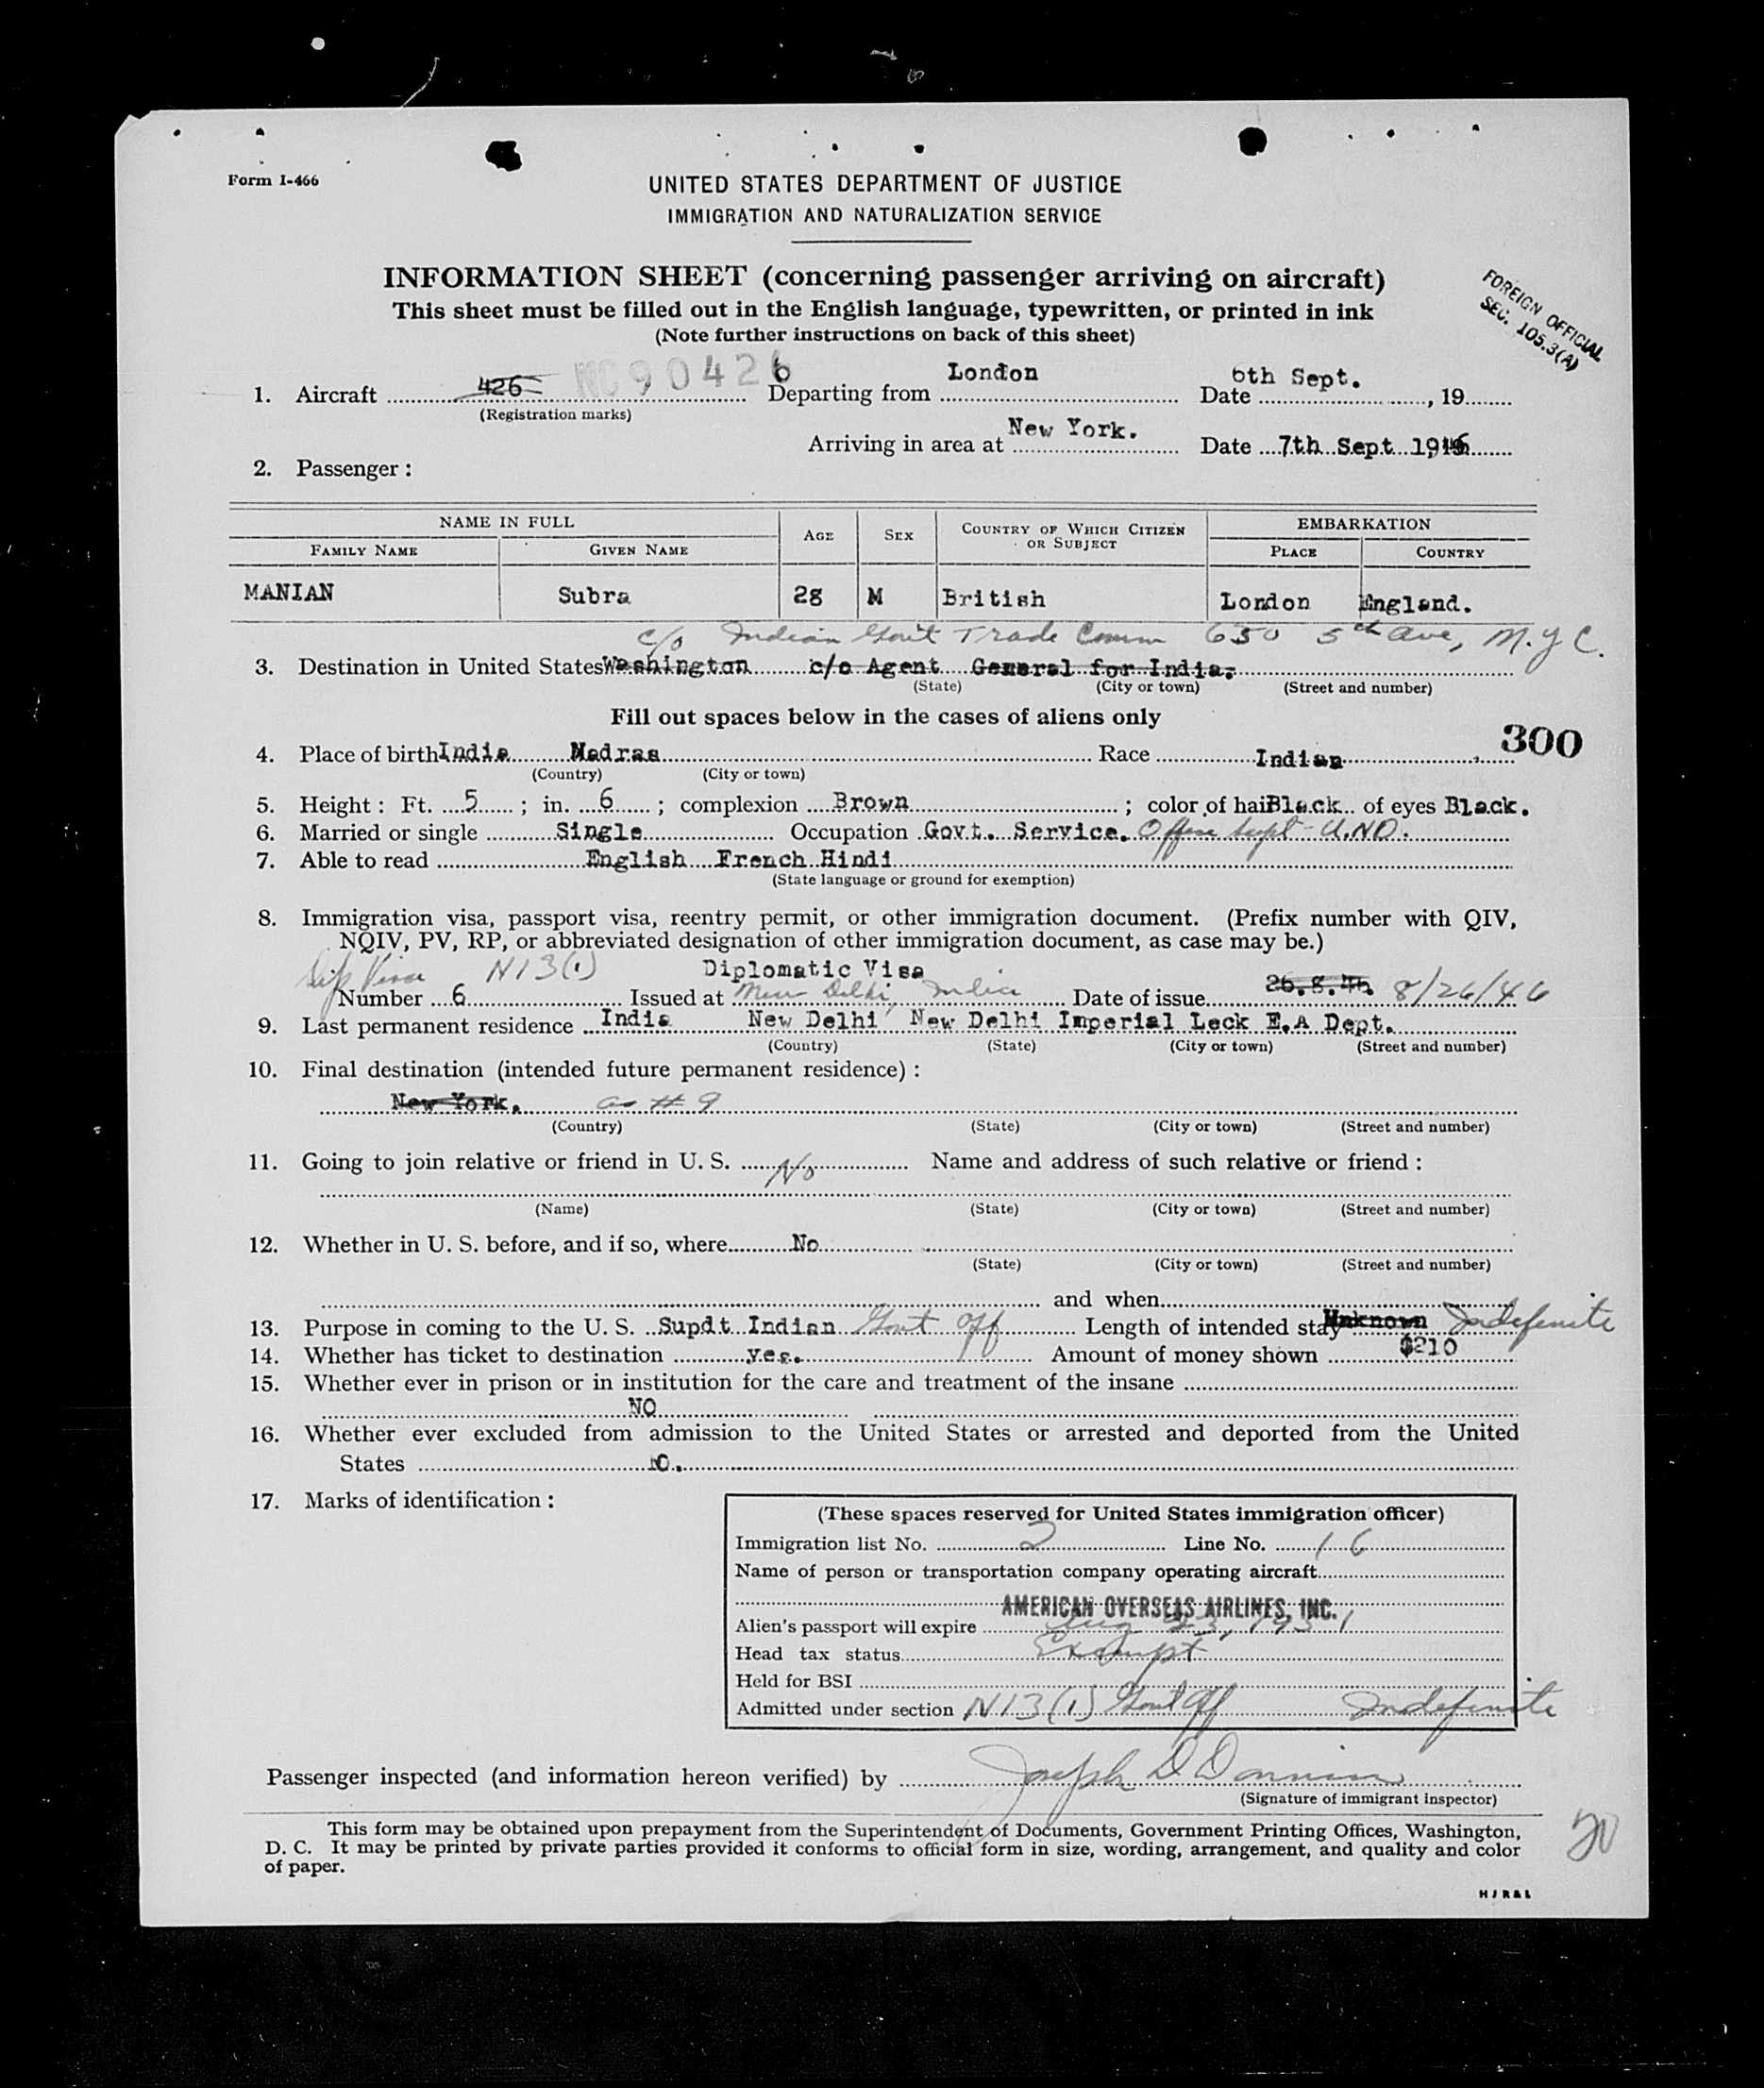 Form I-466
UNITED STATES DEPARTMENT OF JUSTICE
IMMIGRATION AND NATURALIZATION SERVICE
INFORMATION SHEET (concerning passenger arriving on aircraft)
This sheet must be filled out in the English language, typewritten, or printed in ink
(Note further instructions on back of this sheet)
FOREIGN OFFICIAL
SEC. 105.3(A)
1. Aircraft 426 NC90426 Departing from London Date 6th Sept., 19
(Registration marks)
Arriving in area at New York. Date 7th Sept 1946
2. Passenger :
NAME IN FULL AGE SEX COUNTRY OF WHICH CITIZEN OR SUBJECT EMBARKATION
FAMILY NAME GIVEN NAME PLACE COUNTRY
MANIAN Subra 28 M British London England.
c/o Indian Govt Trade Comm 630 5th Ave, N.Y.C.
3. Destination in United States Washington c/o Agent General for India.
(State) (City or town) (Street and number)
Fill out spaces below in the cases of aliens only
300
4. Place of birth India Madras Race Indian
(Country) (City or town)
5. Height : Ft. 5 ; in. 6 ; complexion Brown ; color of hai Black of eyes Black.
6. Married or single Single Occupation Govt. Service. Office Supt - U.NO.
7. Able to read English French Hindi
(State language or ground for exemption)
8. Immigration visa, passport visa, reentry permit, or other immigration document. (Prefix number with QIV,
NQIV, PV, RP, or abbreviated designation of other immigration document, as case may be.)
Dip Visa N13(1) Diplomatic Visa
Number 6 Issued at New Delhi, India Date of issue 26.8.46 8/26/46
9. Last permanent residence India New Delhi New Delhi Imperial Leck E.A Dept.
(Country) (State) (City or town) (Street and number)
10. Final destination (intended future permanent residence) :
New York. as # 9
(Country) (State) (City or town) (Street and number)
11. Going to join relative or friend in U. S. No Name and address of such relative or friend :
(Name) (State) (City or town) (Street and number)
12. Whether in U. S. before, and if so, where No
(State) (City or town) (Street and number)
and when
13. Purpose in coming to the U. S. Supdt Indian Govt Off Length of intended stay Unknown Indefinite
14. Whether has ticket to destination yes. Amount of money shown $210
15. Whether ever in prison or in institution for the care and treatment of the insane
NO
16. Whether ever excluded from admission to the United States or arrested and deported from the United
States NO.
17. Marks of identification :
(These spaces reserved for United States immigration officer)
Immigration list No. 2 Line No. 16
Name of person or transportation company operating aircraft
AMERICAN OVERSEAS AIRLINES, INC.
Alien's passport will expire Aug 23, 1951
Head tax status Exempt
Held for BSI
Admitted under section N13(1) Govt Off Indefinite
Passenger inspected (and information hereon verified) by Joseph D
(Signature of immigrant inspector)
This form may be obtained upon prepayment from the Superintendent of Documents, Government Printing Offices, Washington,
D. C. It may be printed by private parties provided it conforms to official form in size, wording, arrangement, and quality and color
of paper.
20